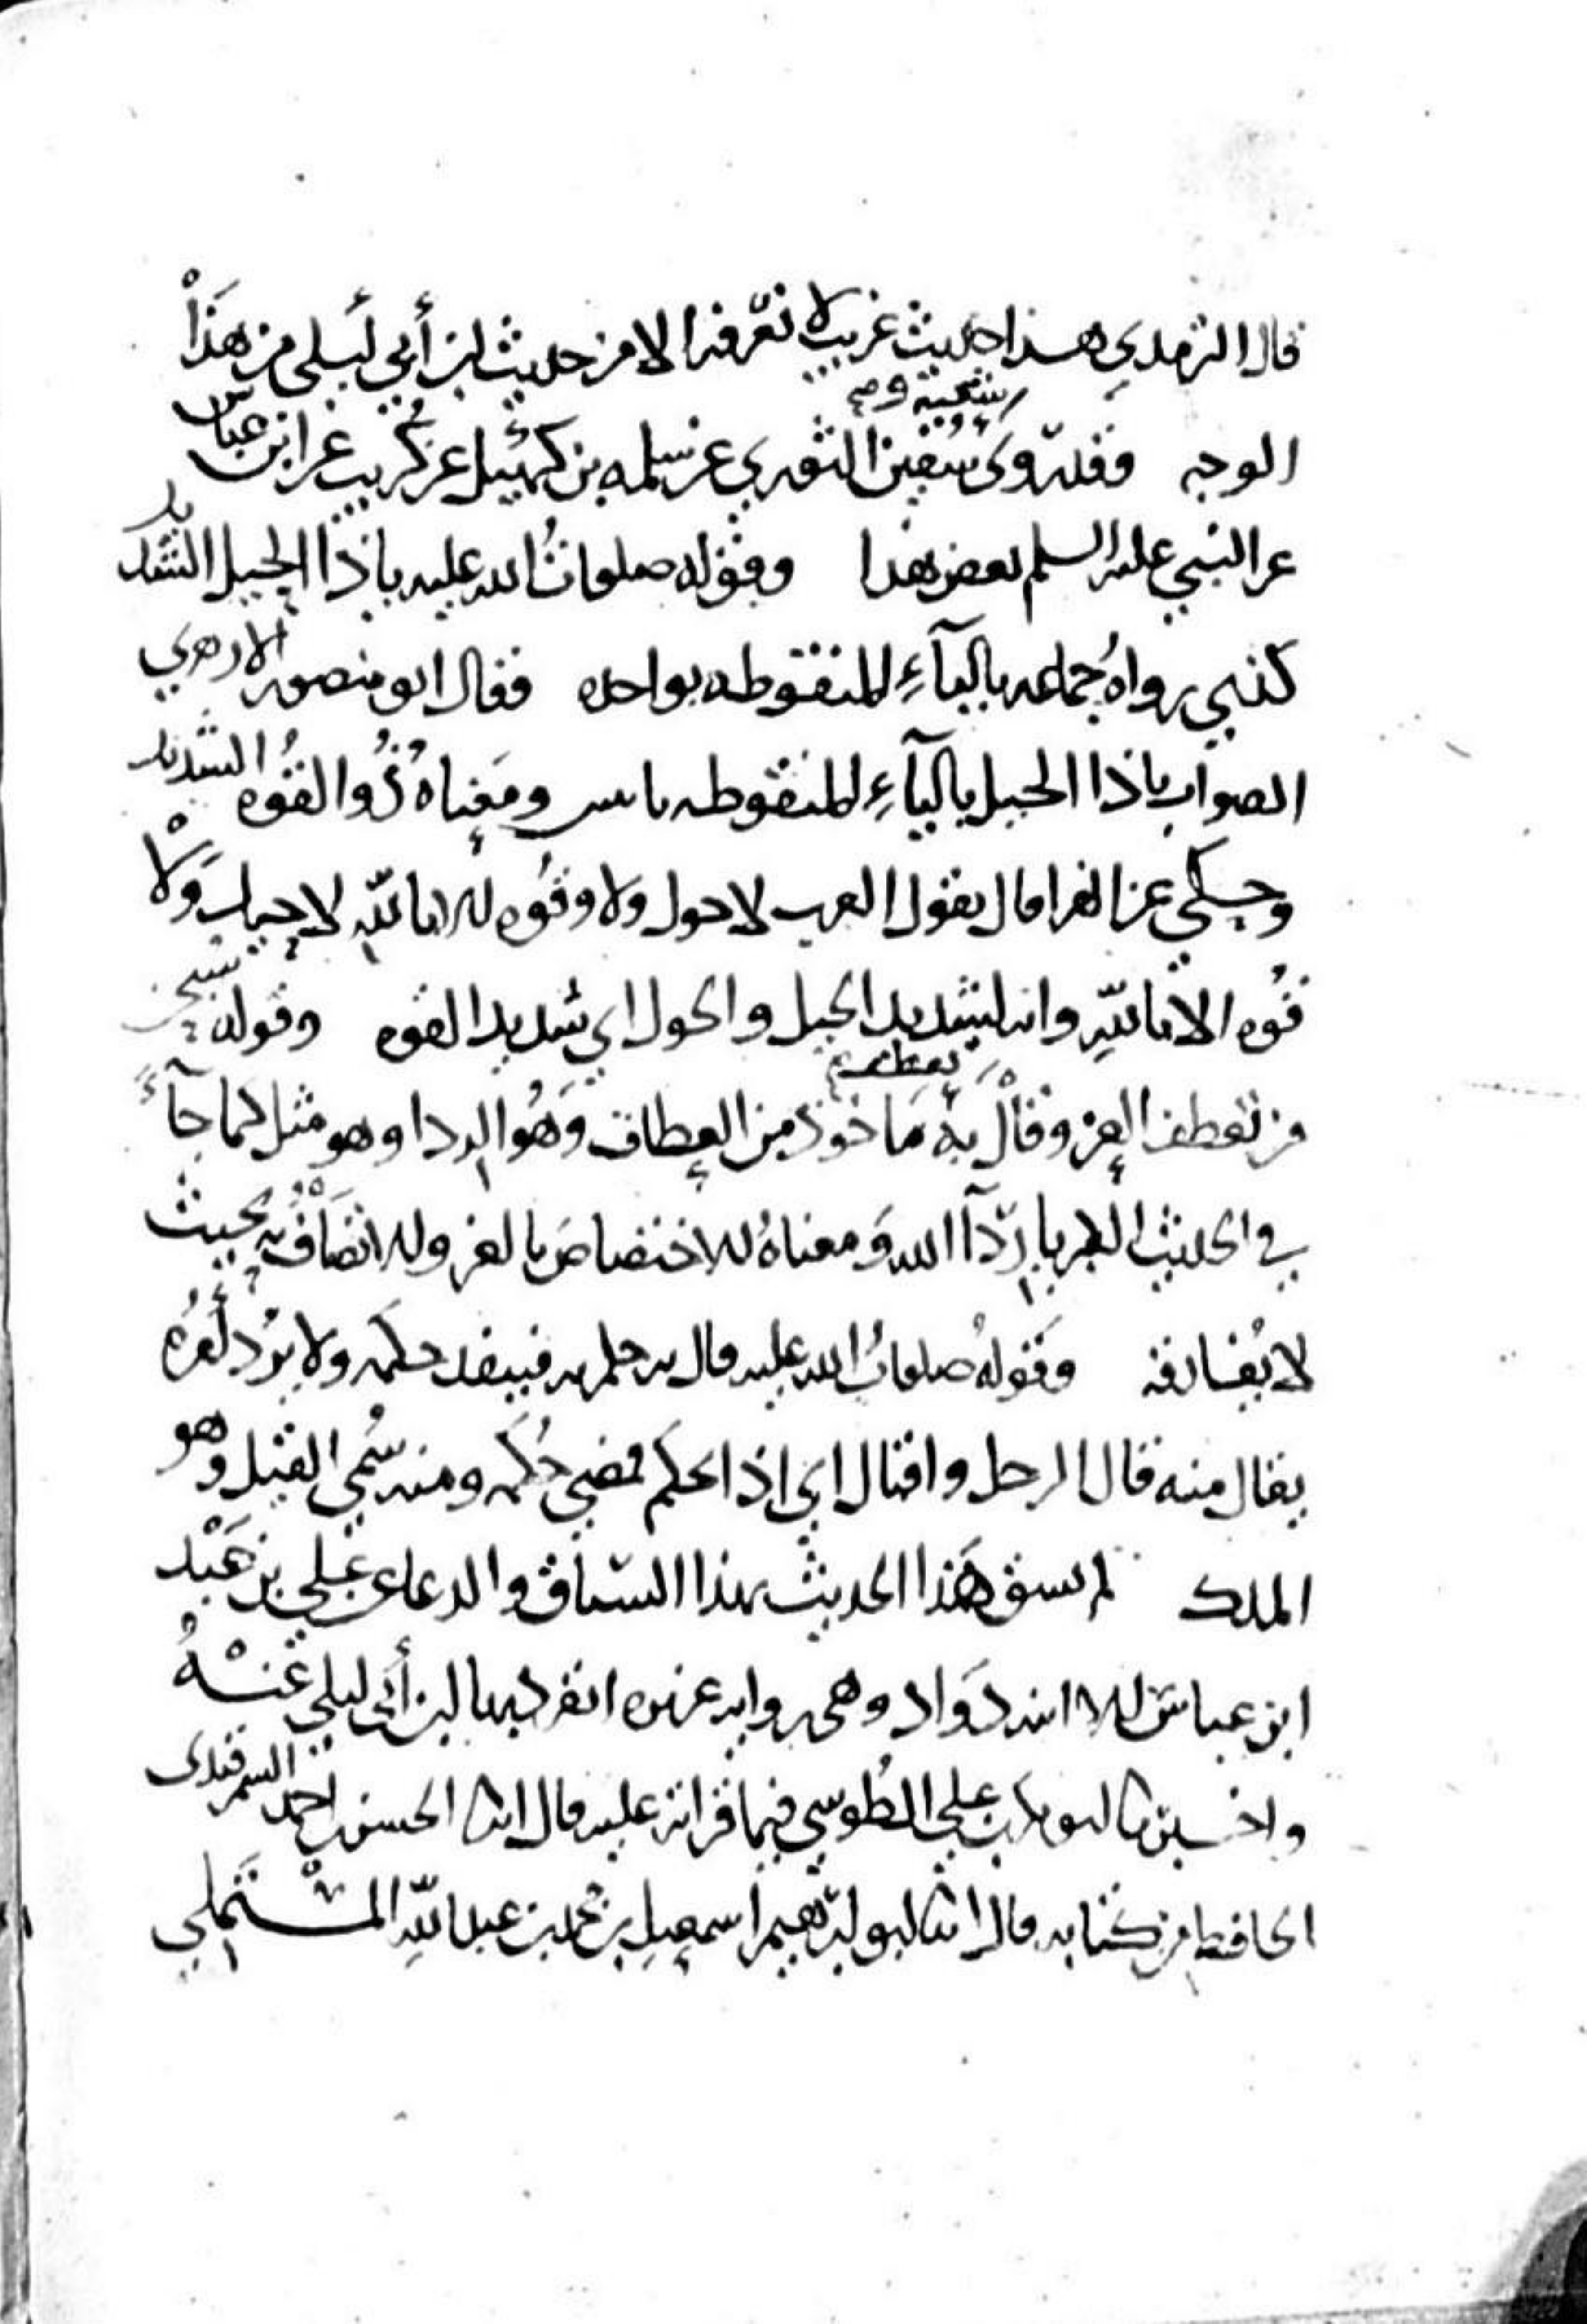 قال الترمذي هذا حديث غريب لا نعرفه الا من حديث ابن أبي ليلى من هذا
الوجه وقد روى شعبة وسفين الثوري عن سلمه بن كهيل عن كريب عن ابن عباس
عن النبي عليه السلم بعض هذا وقوله صلوات الله عليه ياذا الحبل الشديد
كذى رواه جماعه بالباء المنقوطه بواحده فقال ابو منصور الازهري
الصواب ياذا الحيل بالياء المنقوطه باثنين ومعناه ذو القوه الشديد
وحكي عن الفرا قال يقول العرب لا حول ولا وقوه له الا بالله لا حيل ولا
قوه الا بالله وانه لشديد الحيل والحول اي شديد القوه وقوله سبحن
من تعطف العز وقال به ماخوذ من العطاف وهو الردا وهو مثل كما جآء
في الحديث الكبريا ردآ الله ومعناه للاختصاص بالعز وله اتصاف به بحيث
لا يفارقه وقوله صلوات الله عليه وقال به حكم به فينفذ حكمه ولا يرد أمره
يقال منه قال الرجل واقتال اي اذا حكم فمضى حكمه ومنه سمي القيل وهو
الملك لم يسق هذا الحديث بهذا السياق والدعا عن علي بن عبد
ابن عباس الا ابنه دواد وهى روايه عزيزه انفرد بها ابن أبي ليلى عنه
واخبرنا ابو بكر بن علي الطوسي فيما قراته عليه قال انبا الحسن بن احمد السمرقندى
الحافظ من كتابه قال انبا ابو ابرهيم اسمعيل بن محمد بن عبد الله المستملي